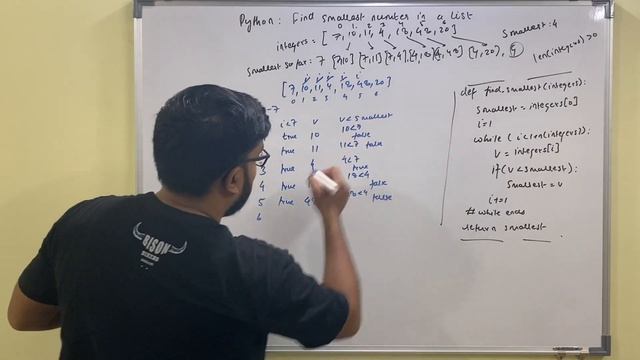 Python: Find smallest number in a list
0 1 2 3 4 5 6
integers = [7, 10, 11, 4, 18, 42, 20]
smallest: 4
smallest so far: 7 [7,10] [7,11] [7,4] [4,18] [4,42] [4,20], 4
len(integers) > 0
i i i i i
[7, 10, 11, 4, 18, 42, 20]
0 1 2 3 4 5 6
i<7 v v<smallest
true 10 10<7 false
true 11 11<7 false
3 true 4 4<7 true
4 true 18<4 false
5 true false
6
def find_smallest(integers):
smallest = integers[0]
i=1
while (i<len(integers)):
v = integers[i]
if (v<smallest):
smallest = v
i+=1
# while ends
return smallest
BISON